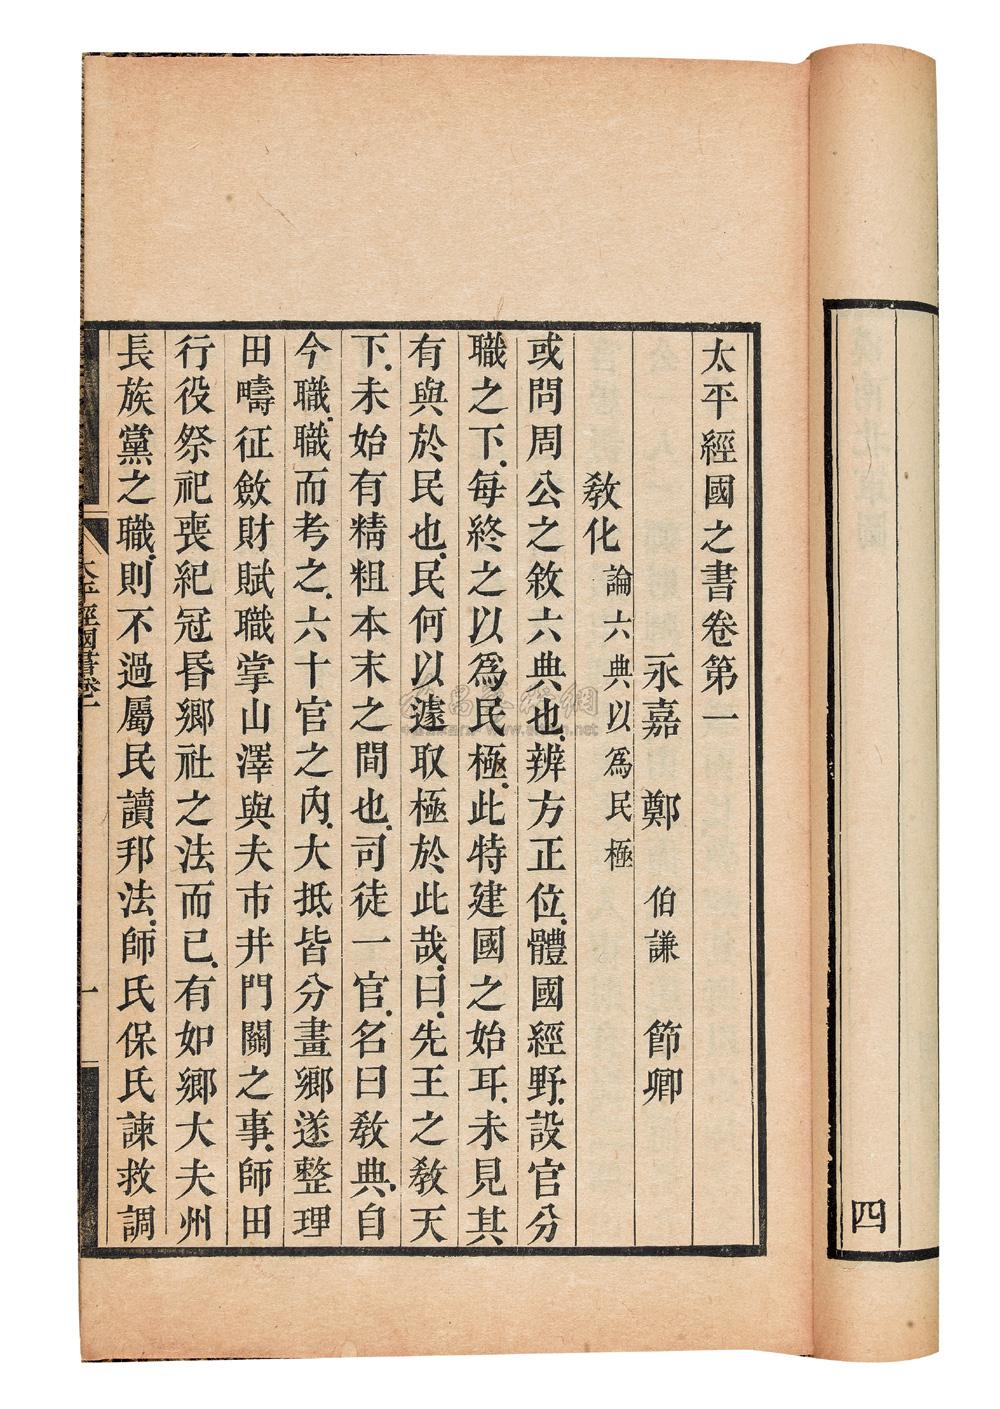 太平經國之書卷第一
永嘉鄭伯謙節卿
教化論六典以爲民極
或問周公之敘六典也辨方正位體國經野設官分
職之下每終之以爲民極此特建國之始耳未見其
有與於民也民何以遽取極於此哉曰先王之教天
下未始有精粗本末之間也司徒一官名曰教典自
今職職而考之六十官之內大抵皆分畫鄉遂整理
田疇征斂財賦職掌山澤與夫市井門關之事師田
行役祭祀喪紀冠昏鄉社之法而已有如鄉大夫州
長族黨之職則不過屬民讀邦法師氏保氏諫救調
太平經國書卷一
一
四